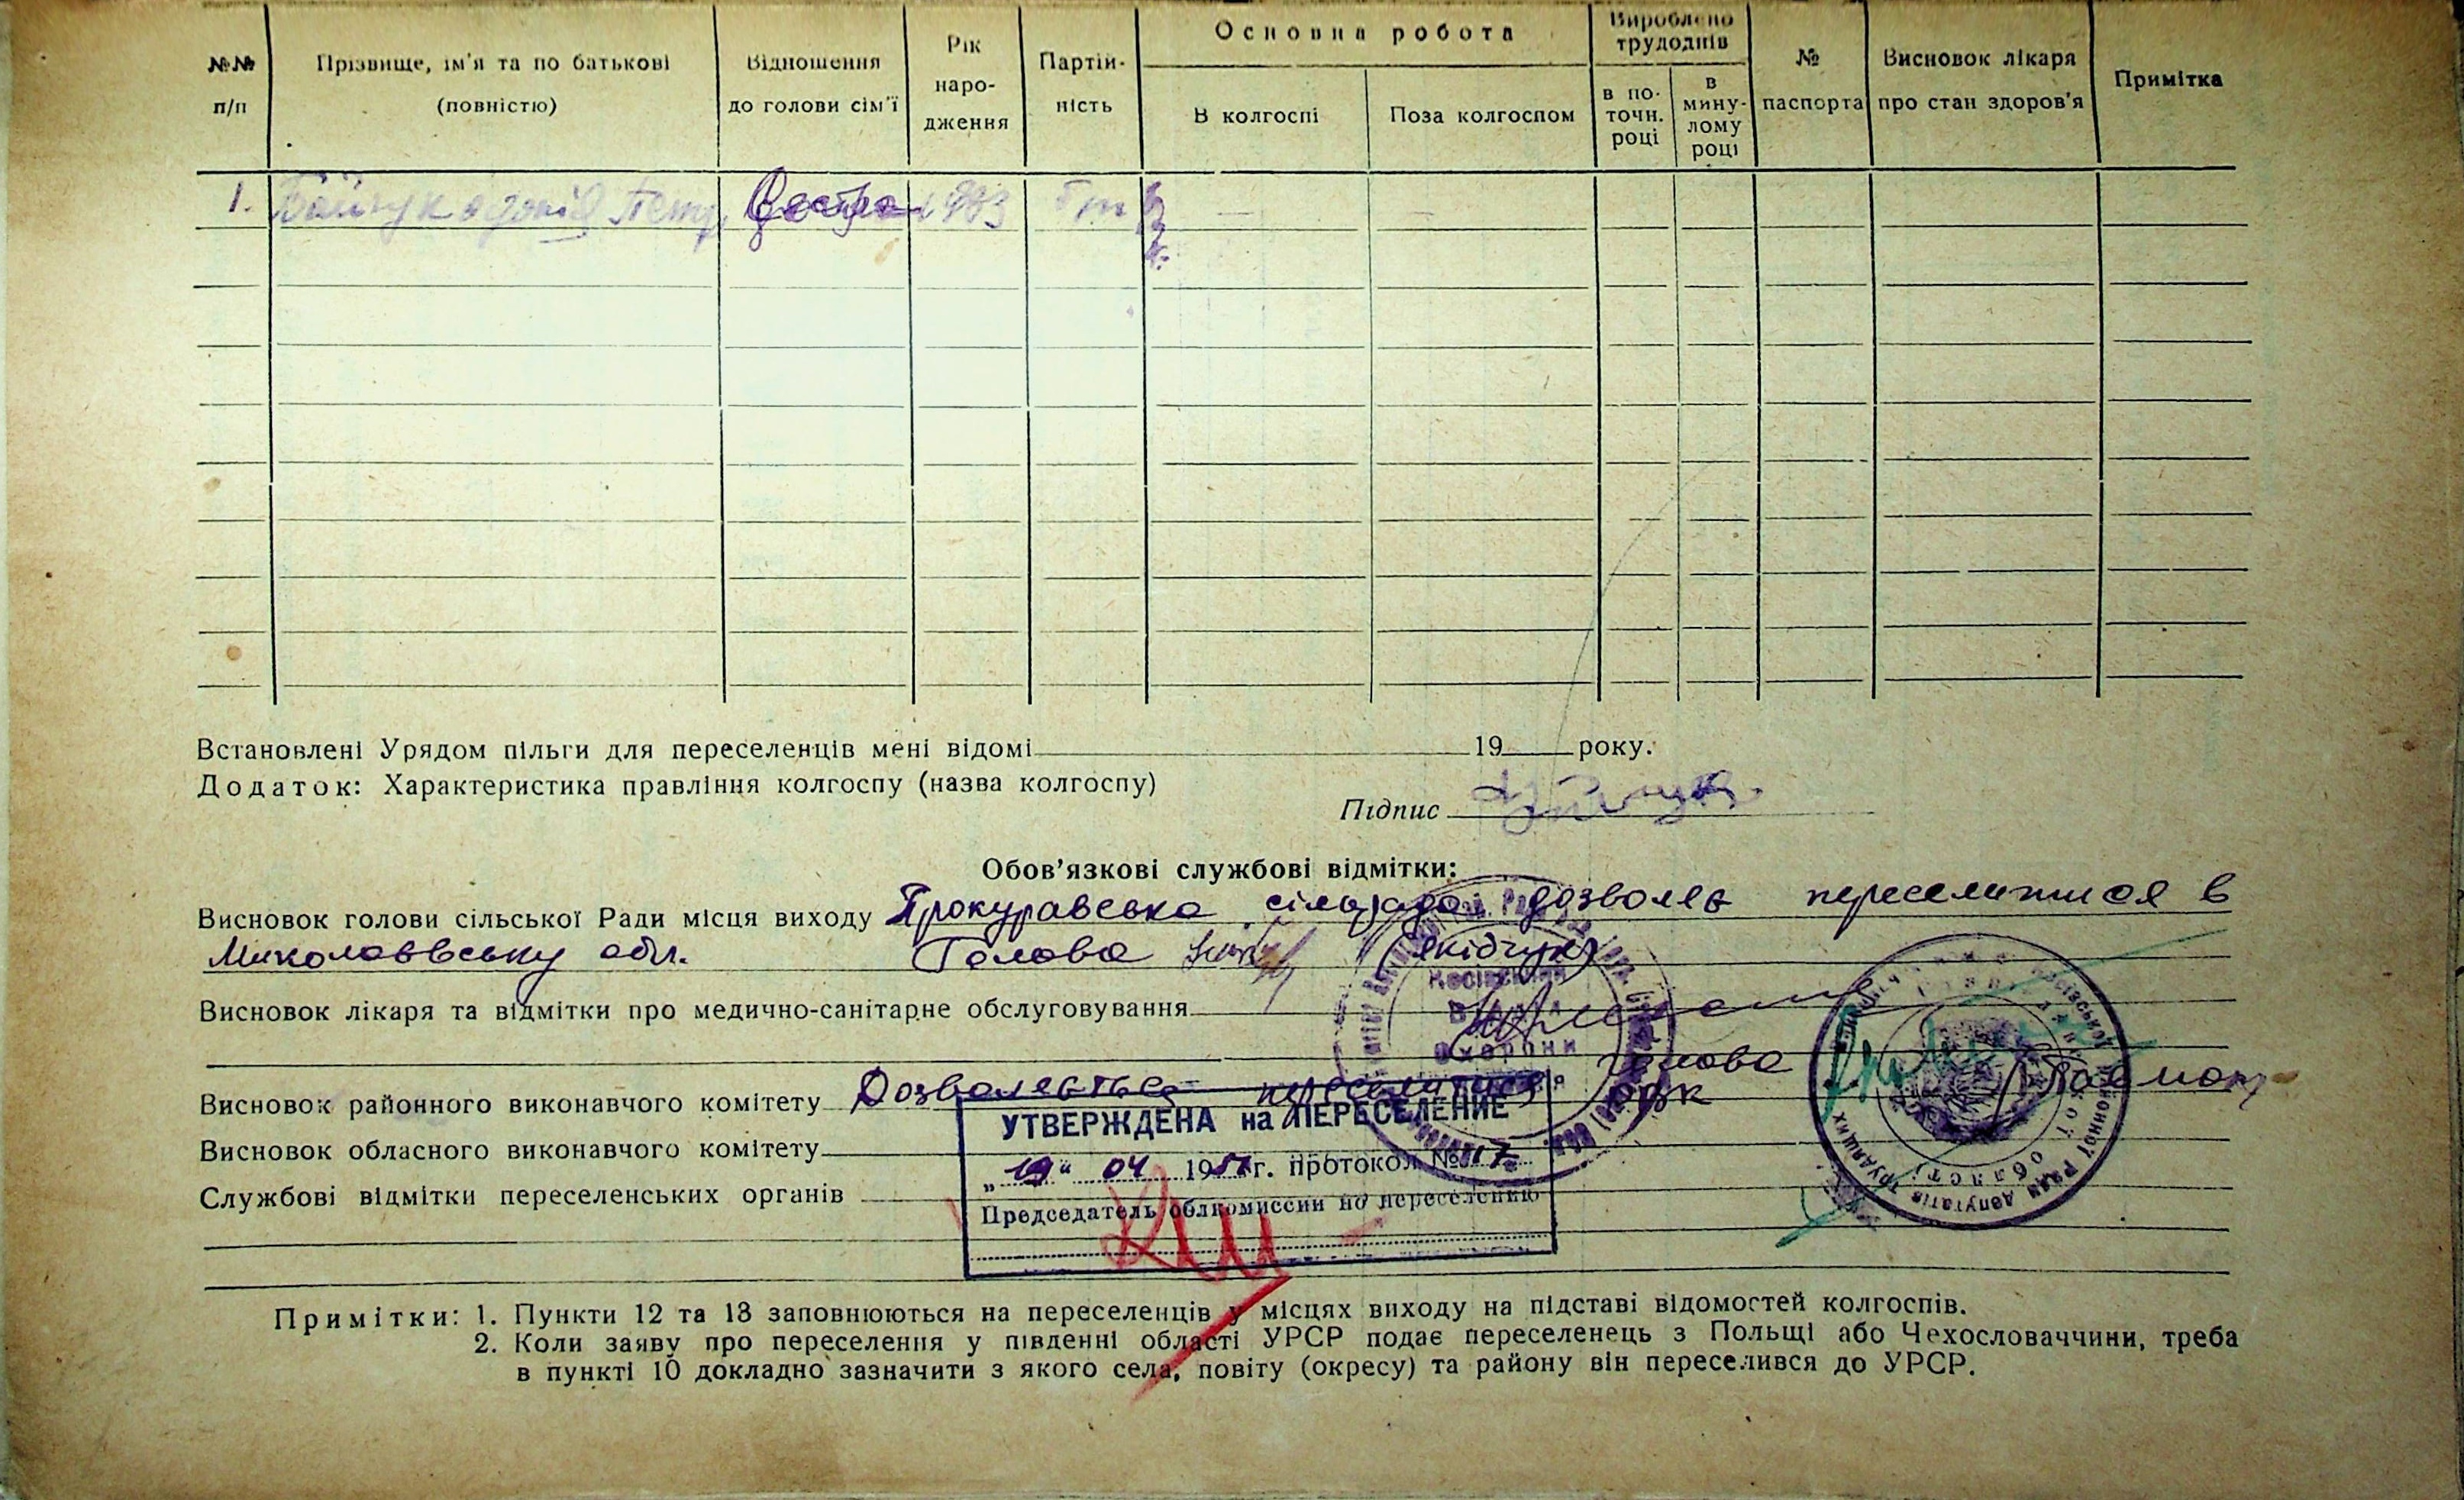 №№ п/п
Прізвище, ім'я та по батькові (повністю)
Відношення до голови сім'ї
Рік народження
Партійність
Основна робота
В колгоспі
Поза колгоспом
Вироблено трудоднів
в поточн. році
в минулому році
№ паспорта
Висновок лікаря про стан здоров'я
Примітка
1. Петр. Сестра 1903
Встановлені Урядом пільги для переселенців мені відомі 19 року.
Додаток: Характеристика правління колгоспу (назва колгоспу)
Підпис
Обов'язкові службові відмітки:
Висновок голови сільської Ради місця виходу Прокуравська сільрада дозволяє переселитися в
Миколаївську обл. Голова
Висновок лікаря та відмітки про медично-санітарне обслуговування
Косівський
Охорони
голова
Висновок районного виконавчого комітету Дозволяється переселитися РВК
УТВЕРЖДЕНА на ПЕРЕСЕЛЕНИЕ
Висновок обласного виконавчого комітету
„19" 04 195 г. протокол № 117
Службові відмітки переселенських органів
Председатель облкомиссии по переселению
Примітки: 1. Пункти 12 та 13 заповнюються на переселенців у місцях виходу на підставі відомостей колгоспів.
2. Коли заяву про переселення у південні області УРСР подає переселенець з Польщі або Чехословаччини, треба
в пункті 10 докладно зазначити з якого села, повіту (окресу) та району він переселився до УРСР.